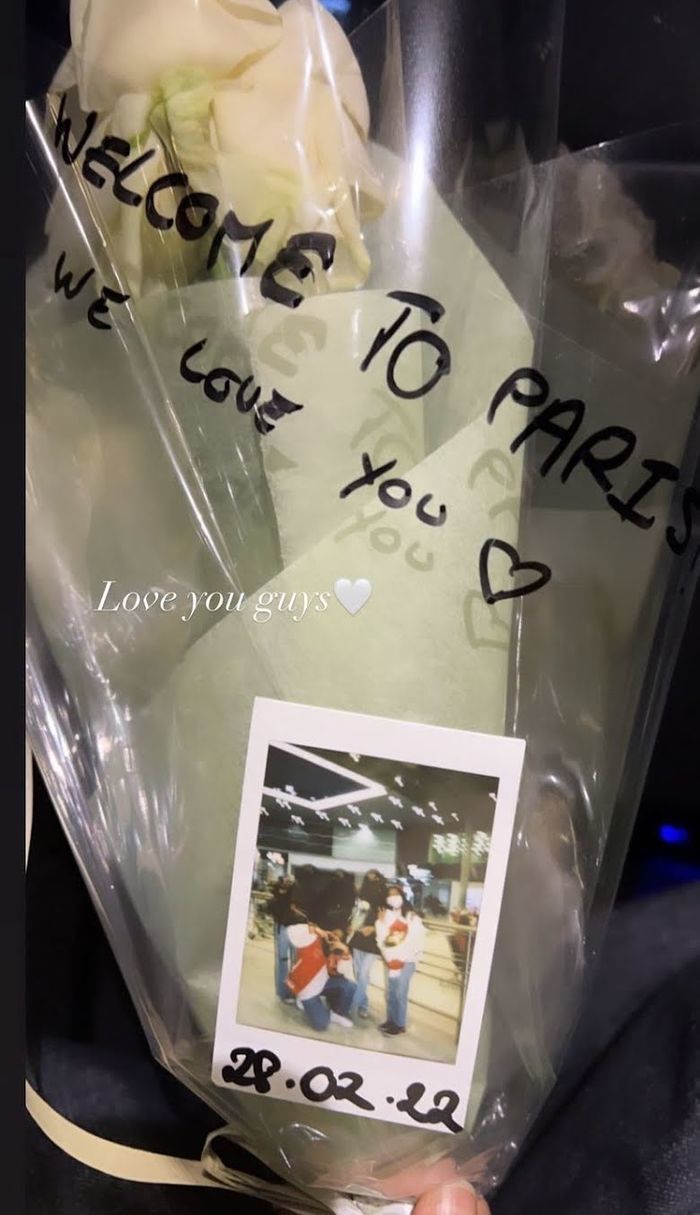 WELCOME TO PARIS
WE LOVE YOU ♡
Love you guys🤍
28.02.22